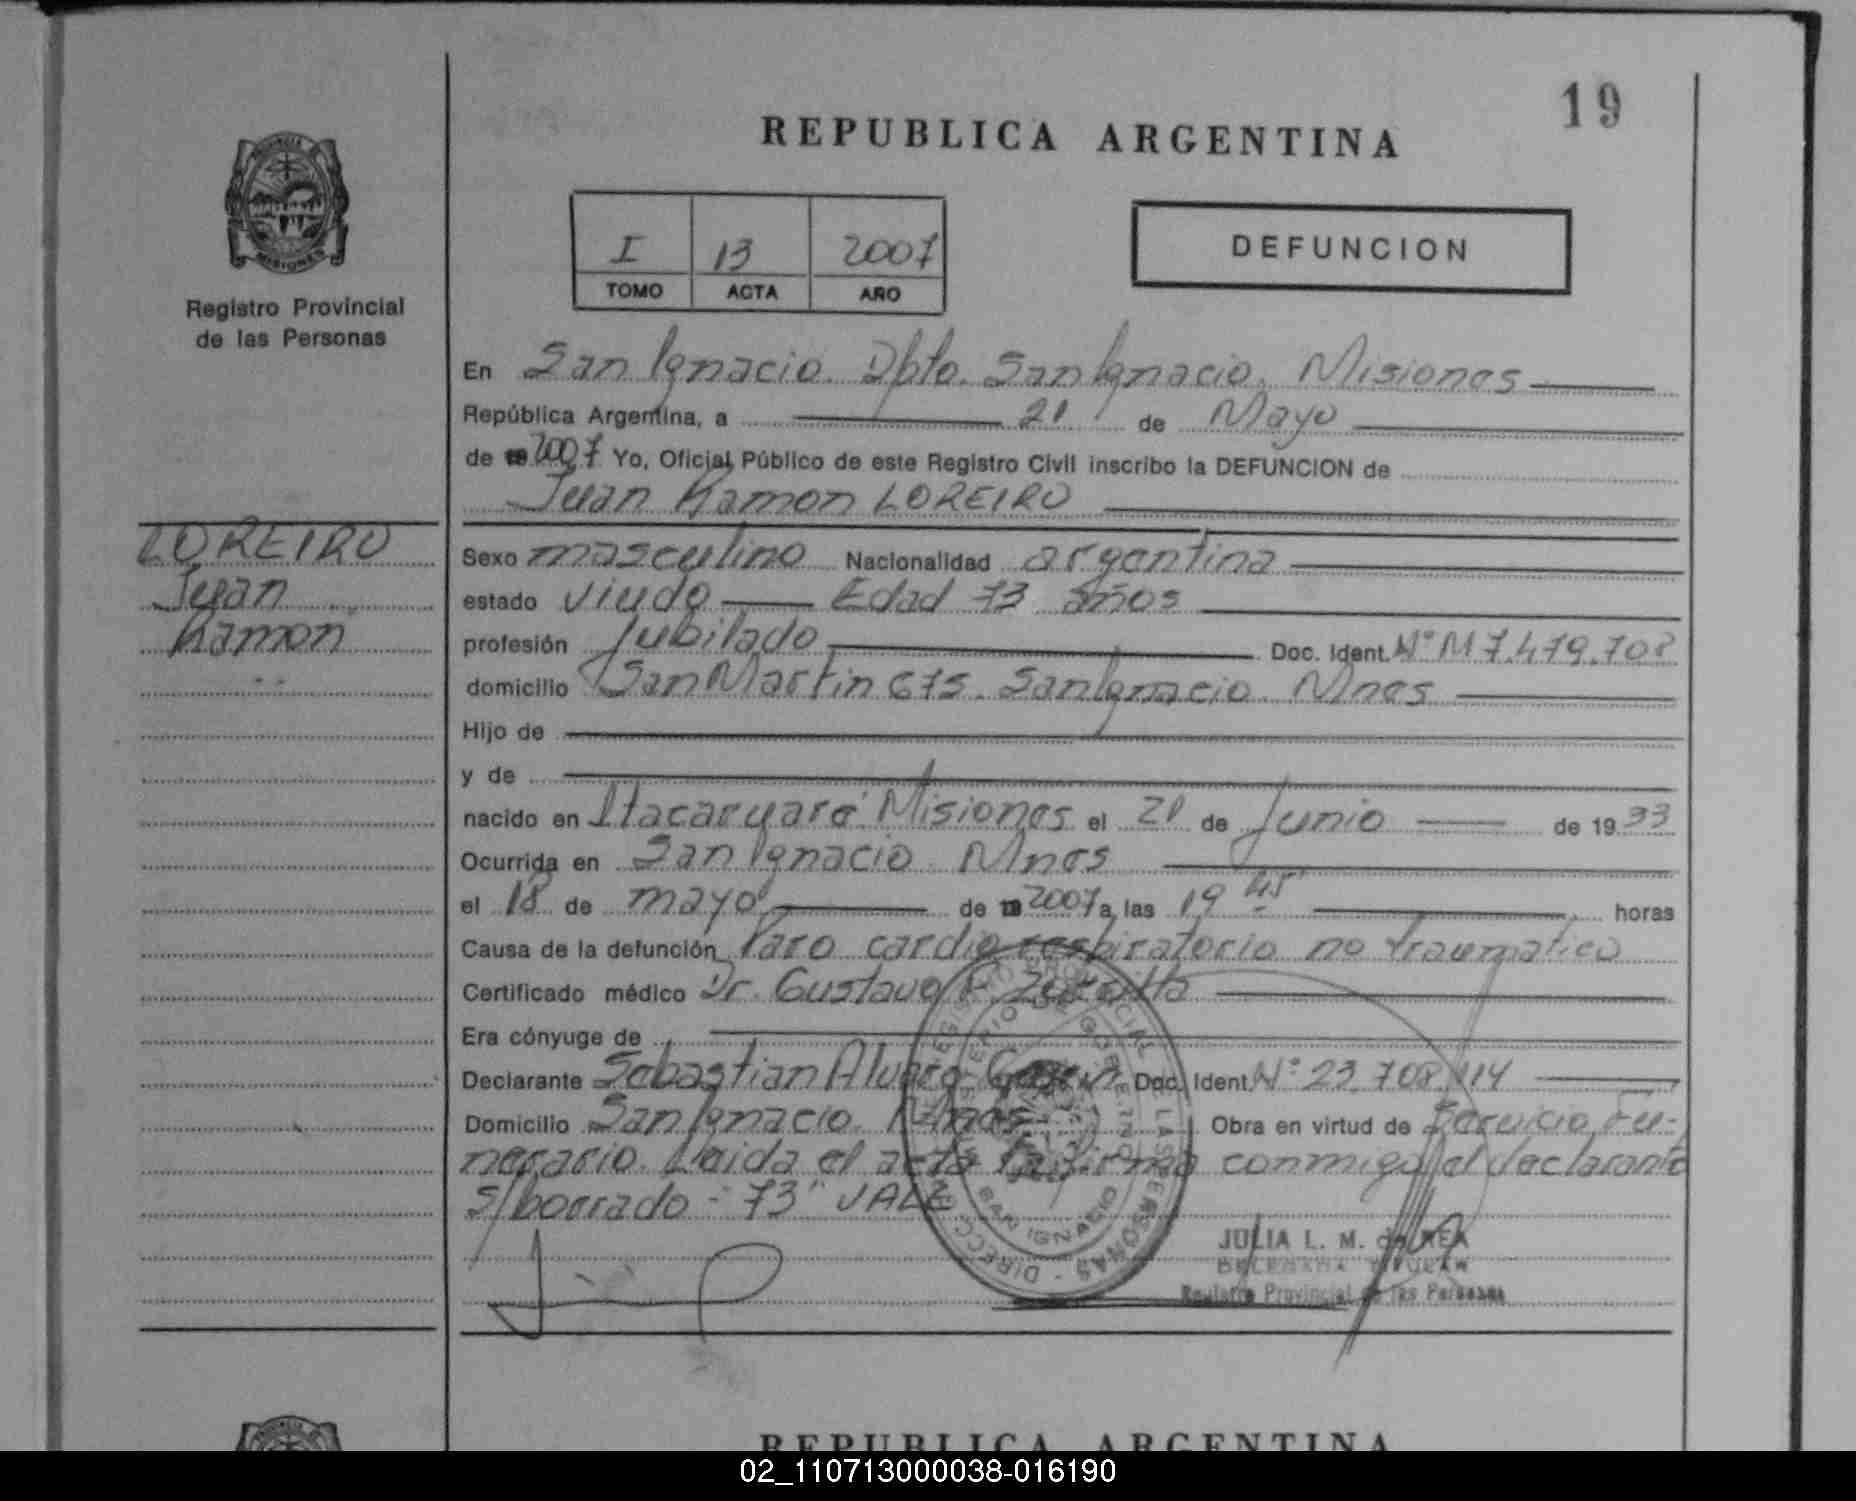 19
REPUBLICA ARGENTINA
PROVINCIA
MISIONES
Registro Provincial
de las Personas
I 13 2007
TOMO ACTA AÑO
DEFUNCION
En San Ignacio. Dpto. San Ignacio. Misiones
República Argentina, a 21 de Mayo
de 2007 Yo, Oficial Público de este Registro Civil inscribo la DEFUNCION de
Juan Ramon LOREIRO
LOREIRO
Juan
Ramon
Sexo masculino Nacionalidad argentina
estado viudo Edad 73 años
profesión Jubilado Doc. Ident. Nº M 7.479.708
domicilio San Martin 675. San Ignacio. Mnes
Hijo de
y de
nacido en Itacaruaré Misiones el 21 de Junio de 1933
Ocurrida en San Ignacio Mnes
el 18 de mayo de 2007 a las 19 45 horas
Causa de la defunción Paro cardio respiratorio no traumatico
Certificado médico Dr. Gustavo
Era cónyuge de
Declarante Sebastian Alvaro Doc. Ident. Nº 23.708.114
Domicilio San Ignacio. Mnes Obra en virtud de Servicio Fu-
nerario. Leida el acta la firma conmigo el declarante
s/borrado - 73" VALE
SAN IGNACIO
JULIA L. M. de REA
DELEGADA TITULAR
Registro Provincial de las Personas
REPUBLICA ARGENTINA
02_110713000038-016190